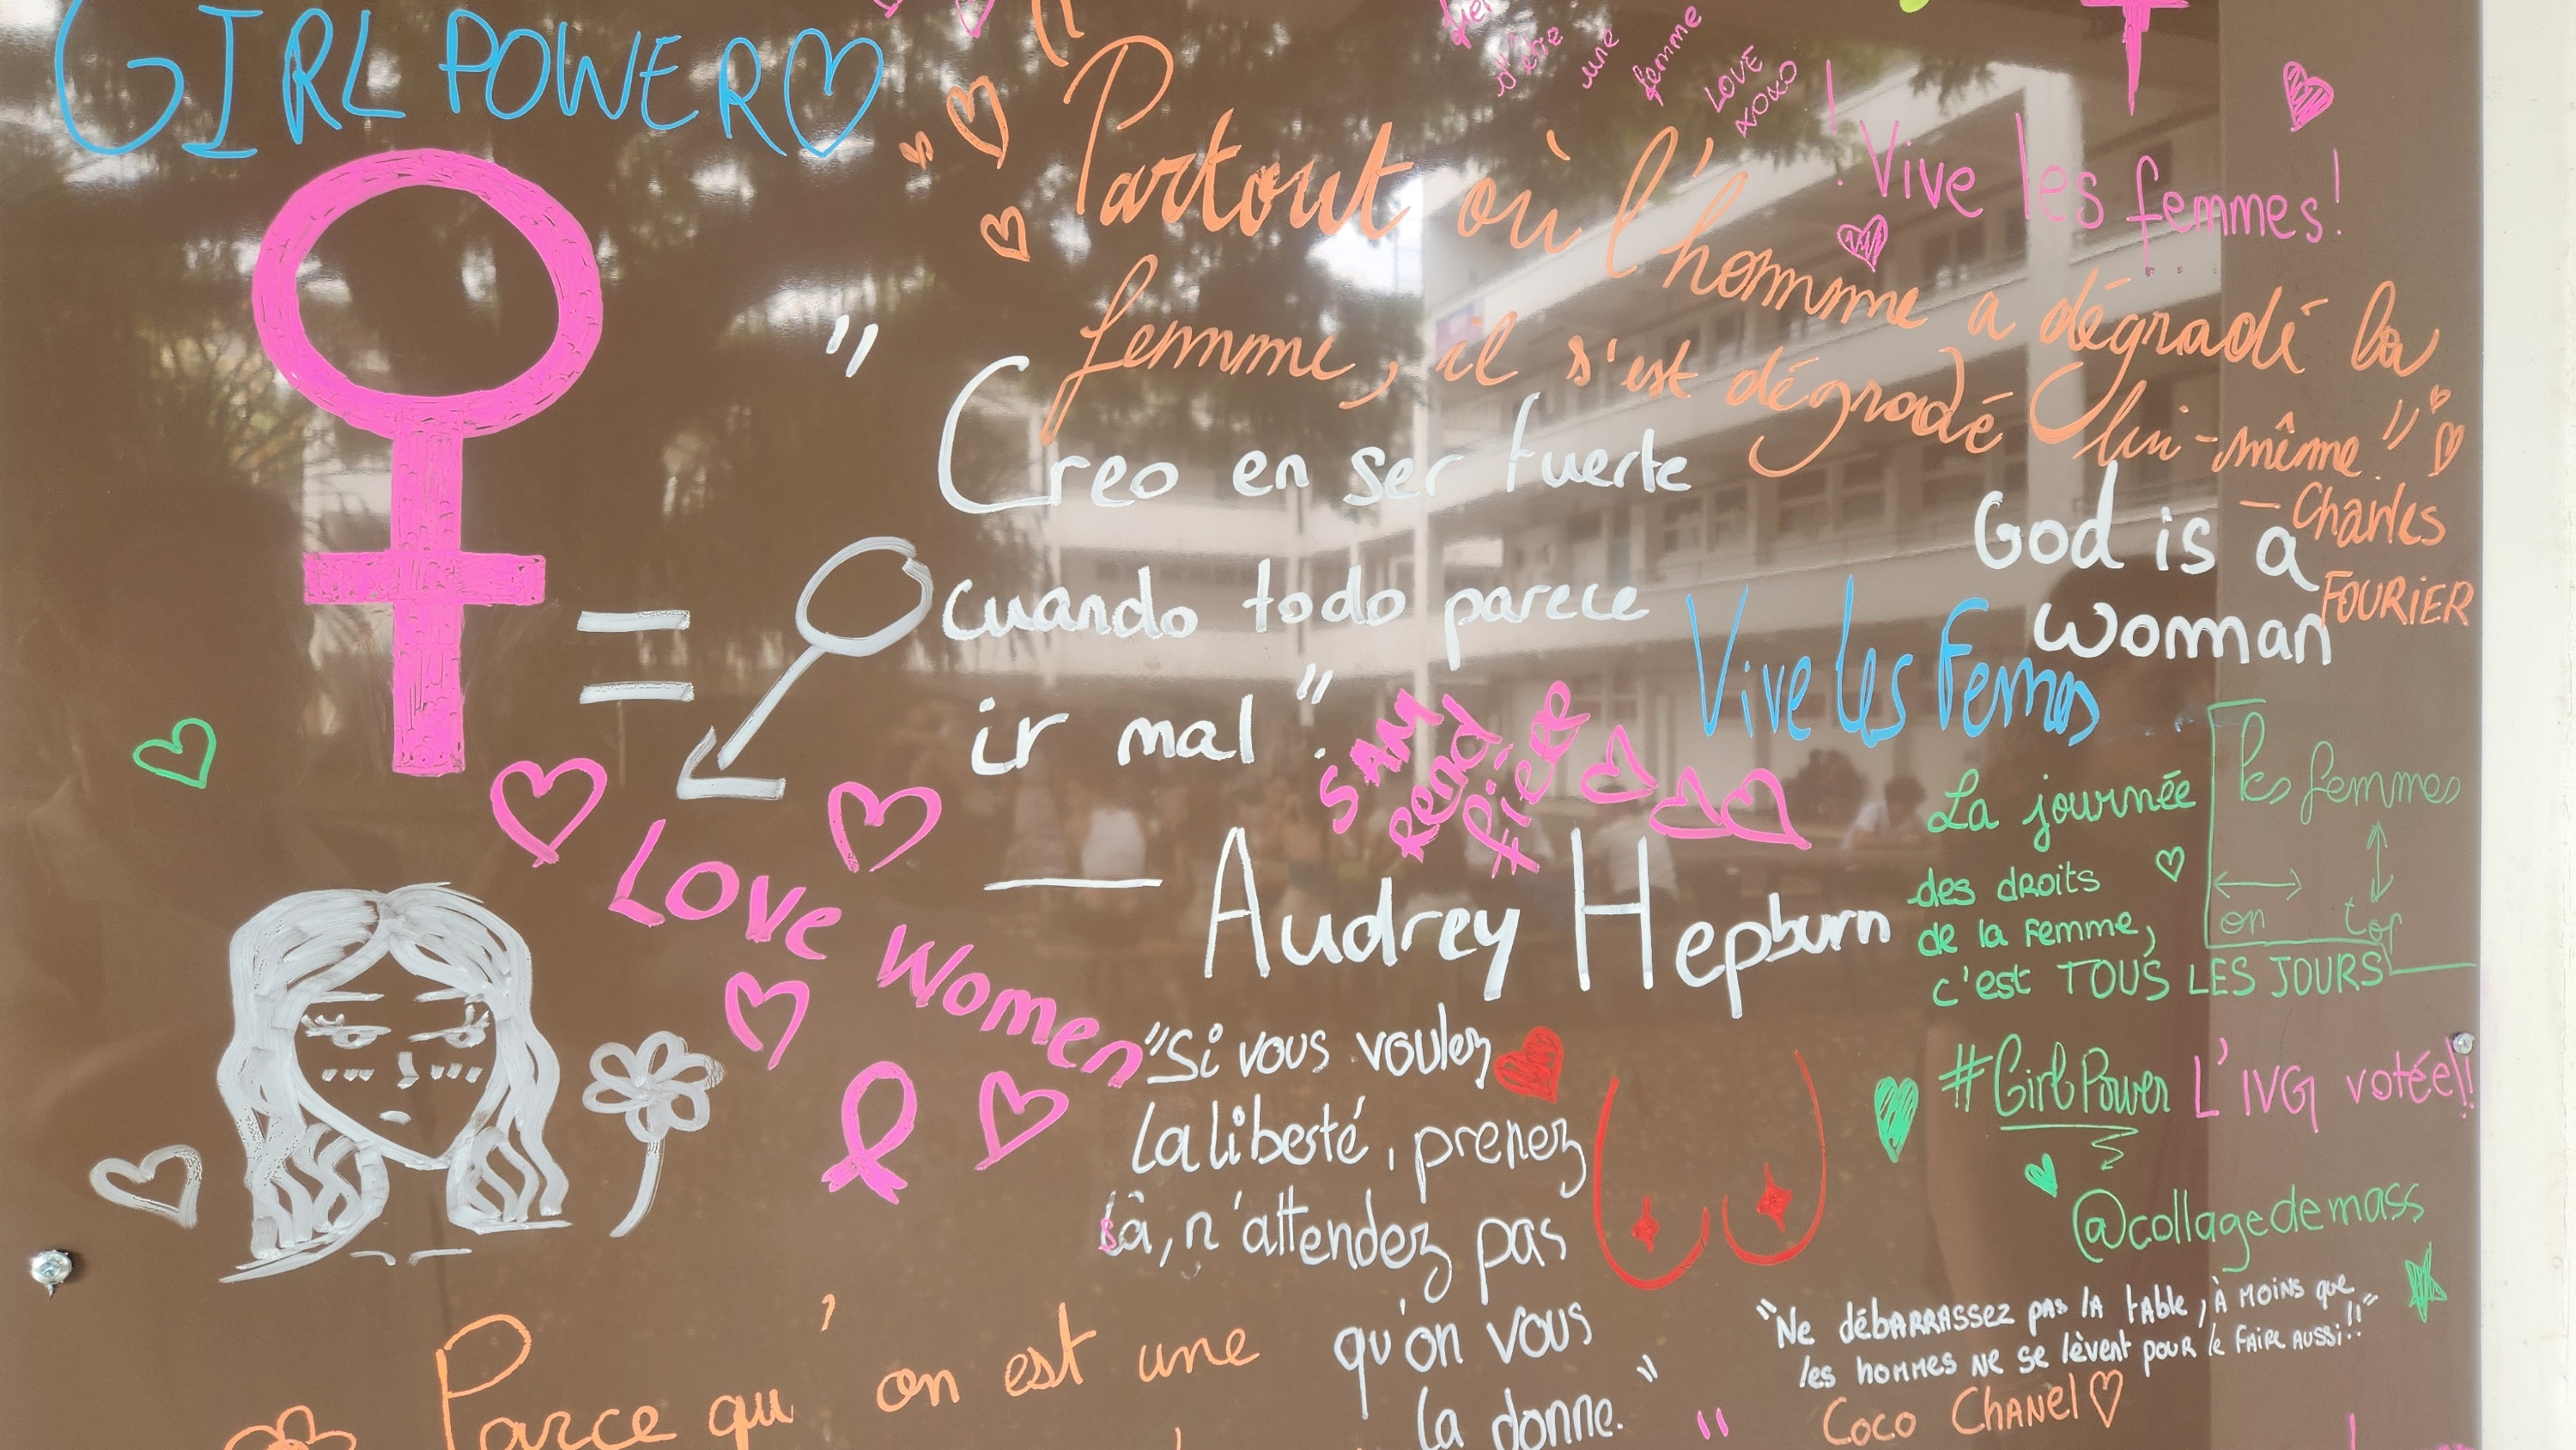 GIRL POWER
d'être
une
femme
LOVE
XOXO
! Vive les femmes!
" Partout où l'homme a dégradé la
femme, il s'est dégradé lui-même"
- Charles
FOURIER
" Creo en ser fuerte
cuando todo parece
ir mal".
— Audrey Hepburn
God is a
woman
=
Vive les Femmes
SAM
REND
fière
Love Women
La journée
des droits
de la femme,
c'est TOUS LES JOURS
les femmes
on
#GirlPower
L'IVG votée!!
@collagedemass
"Si vous voulez
la liberté, prenez
la, n'attendez pas
qu'on vous
la donne."
"Ne débarrassez pas la table, à moins que
les hommes ne se lèvent pour le faire aussi!!"
Coco Chanel
Parce qu'on est une